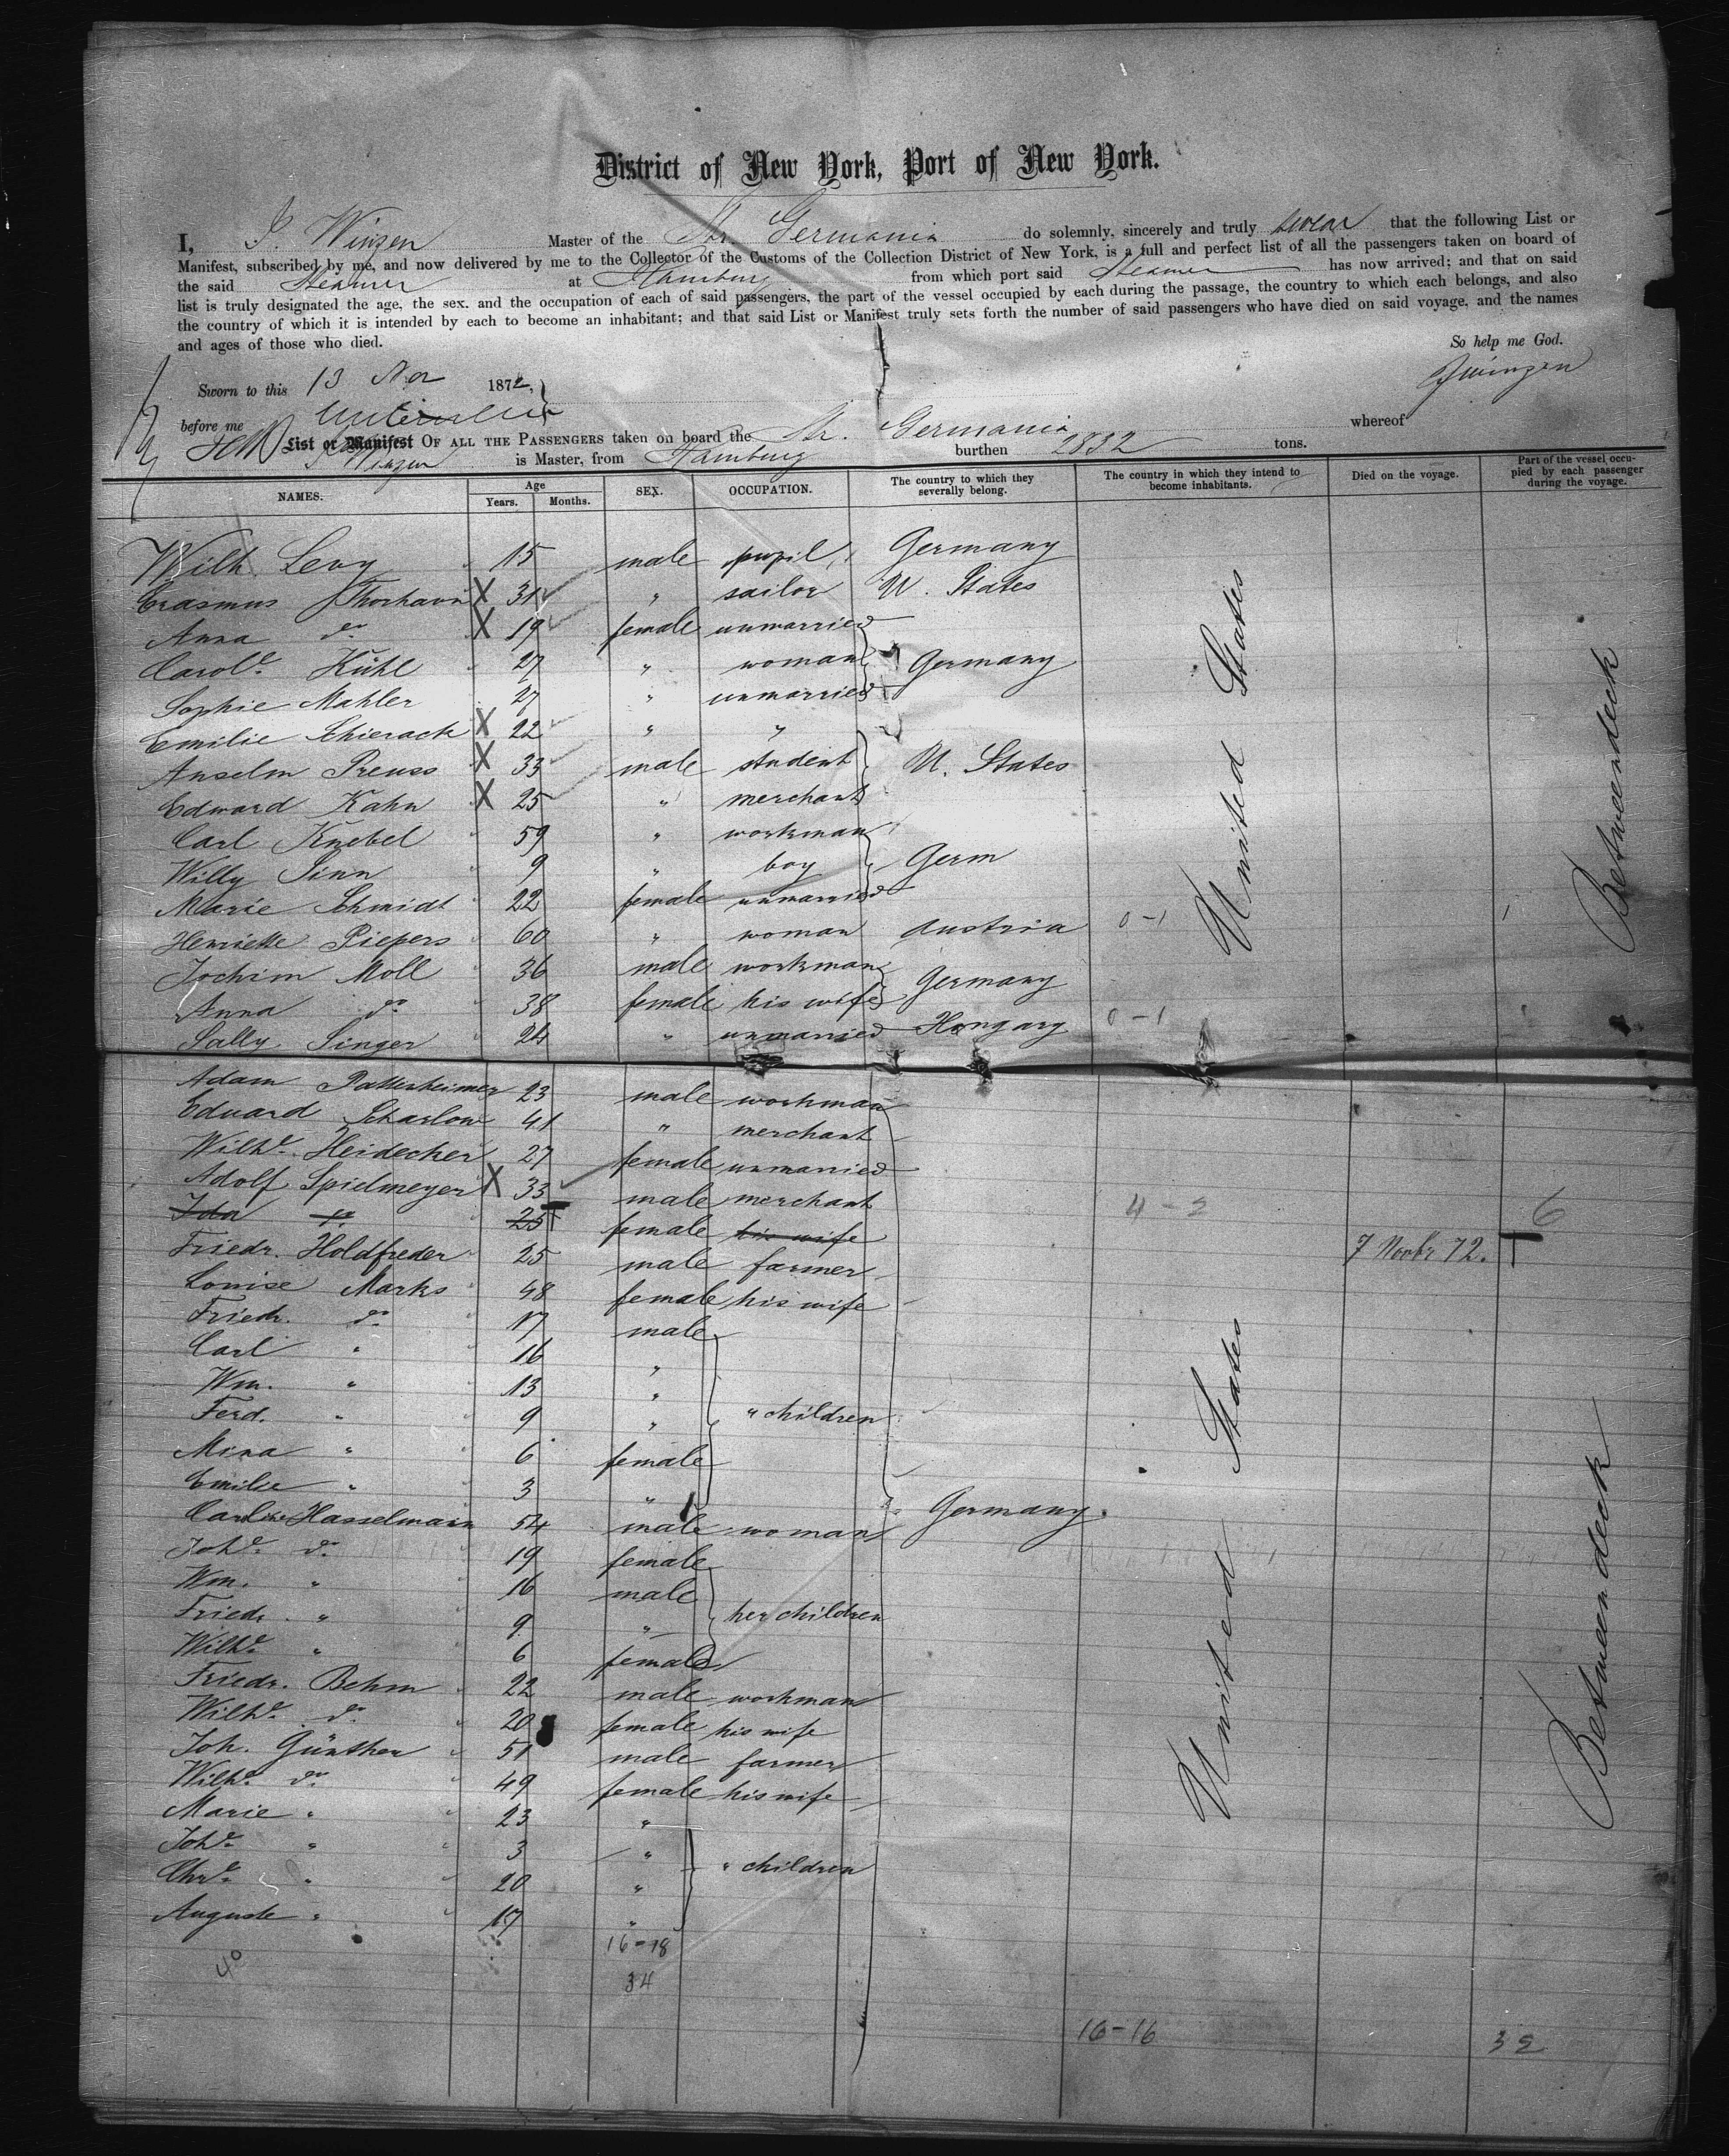 District of New York, Port of New York.
I, J. Winzen Master of the Str. Germania do solemnly, sincerely and truly swear that the following List or
Manifest, subscribed by me, and now delivered by me to the Collector of the Customs of the Collection District of New York, is a full and perfect list of all the passengers taken on board of
the said Steamer at Hamburg from which port said Steamer has now arrived; and that on said
list is truly designated the age, the sex. and the occupation of each of said passengers, the part of the vessel occupied by each during the passage, the country to which each belongs, and also
the country of which it is intended by each to become an inhabitant; and that said List or Manifest truly sets forth the number of said passengers who have died on said voyage, and the names
and ages of those who died.
So help me God.
Sworn to this 13 Nov 1872, JWinzen
before me
List or Manifest OF ALL THE PASSENGERS taken on board the Str. Germania whereof
J. Winzen is Master, from Hamburg burthen 2832 tons.
NAMES. Age Years. Months. SEX. OCCUPATION. The country to which they severally belong. The country in which they intend to become inhabitants. Died on the voyage. Part of the vessel occupied by each passenger during the voyage.
Wilh. Levy 15 male pupil Germany
Erasmus X 31 " sailor U. States
Anna do X 19 female unmarried
Carole. Kühl 27 " woman Germany
Sophie Mahler 27 " unmarried
Emilie Schierack X 22 " "
Anselm Preuss X 33 male student U. States
Edward Kahn X 25 " merchant
Carl Knebel 59 " workman
Willy Sinn 9 " boy Germ
Marie Schmidt 22 female unmarried
Henriette Piepers 60 " woman Austria 0-1 1
Jochim Moll 36 male workman Germany
Anna do 38 female his wife
Sally Singer 24 " unmarried Hongary 0-1
United States
Betweendeck
Adam Patterheimer 23 male workman
Eduard Scharlow 41 " merchant
Wilhe. Heidecker 27 female unmarried
Adolf Spielmeyer X 33 male merchant 4-2 6
Ida do 25 female his wife 7 Novbr 72.
Friedr. Holdfreder 25 male farmer
Louise Marks 48 female his wife
Friedr. do 17 male
Carl " 16 "
Wm. " 13 "
Ferd. " 9 " " children
Mina " 6 female
Emilie " 3 "
Caroline Hasselmann 54 male woman Germany
Johe. do 19 female
Wm. " 16 male
Friedr. " 9 " her children
Wilhe. " 6 female
Friedr. Behm 22 male workman
Wilhe. do 20 female his wife
Joh. Günther 51 male farmer
Wilhe. do 49 female his wife
Marie " 23 "
Johe. " 3 "
Chre. " 20 " " children
Auguste " 17 "
United States
Betweendeck
40 16-18
34
16-16 32